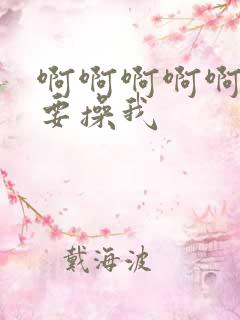 啊啊啊啊啊
要操我
戴海波